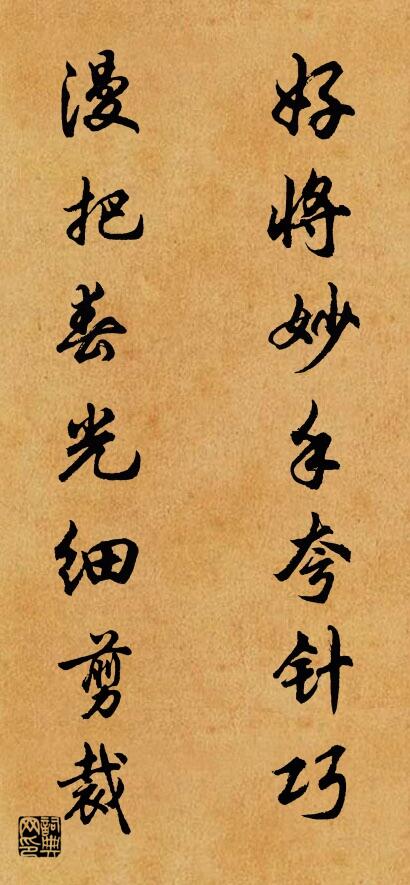 好将妙手夸针巧
漫把春光细剪裁
词典网印